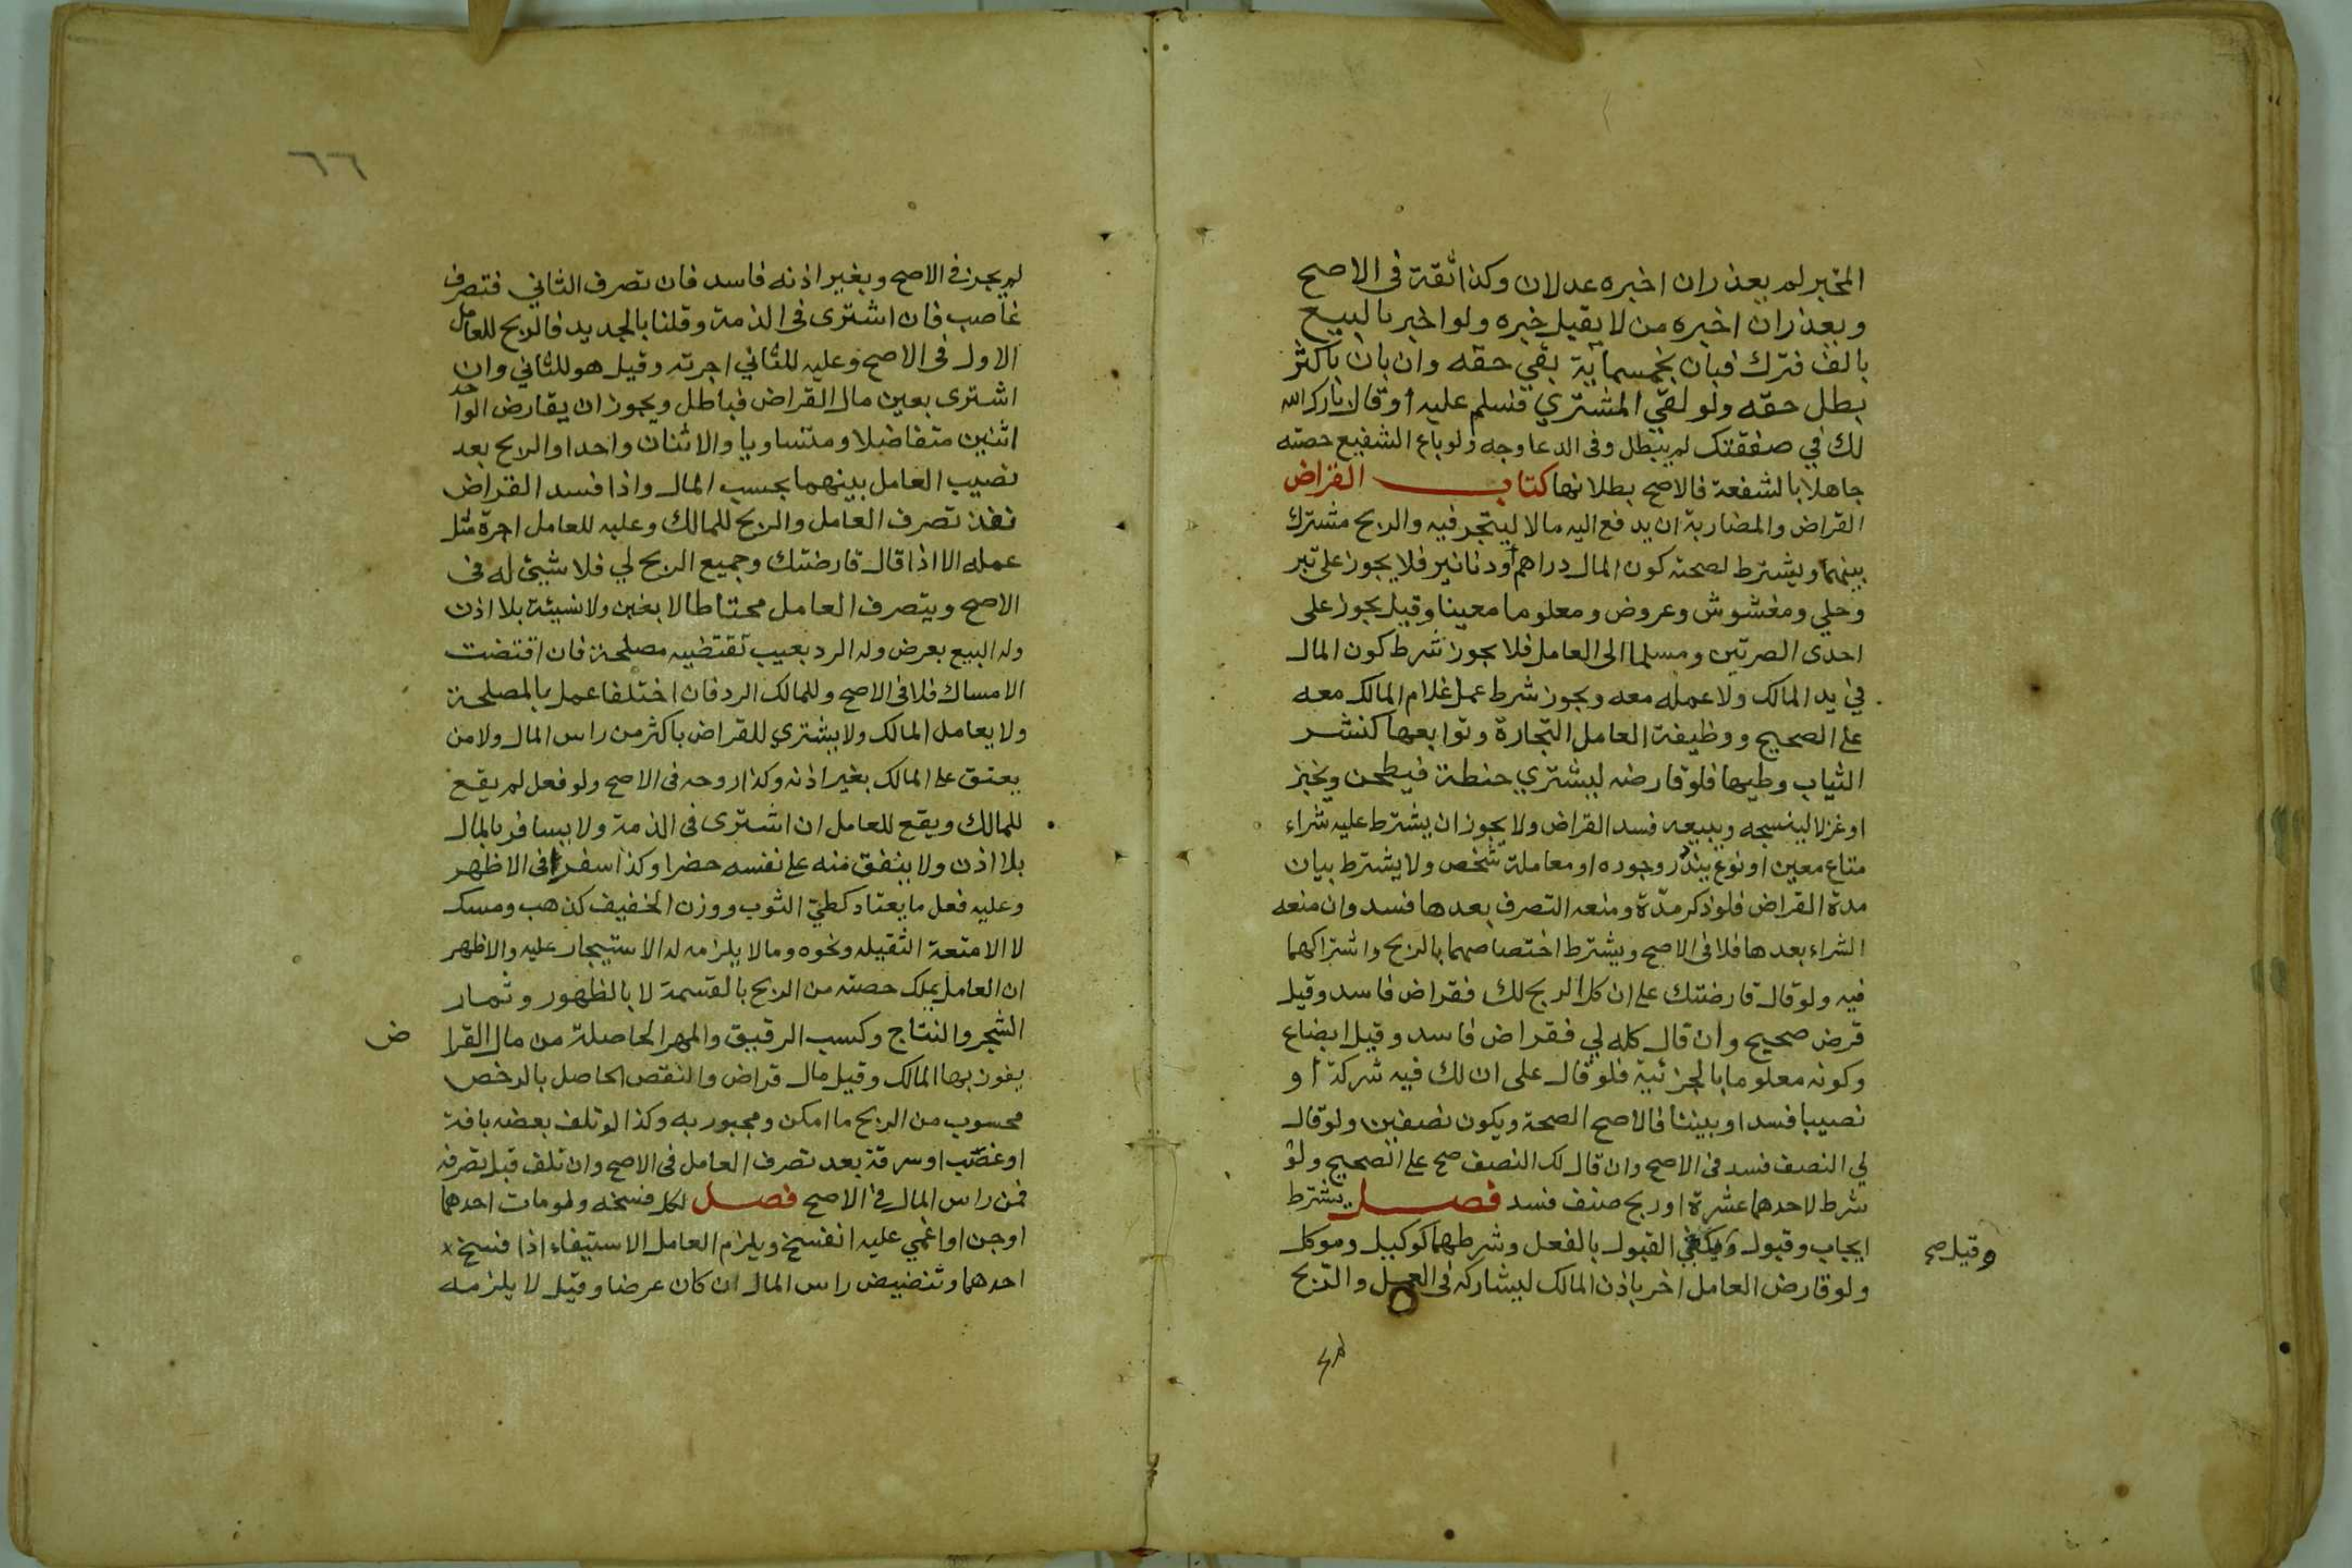 المخبر لم يعذر ان اخبره عدلان وكذا ثقة في الاصح
ويعذر ان اخبره من لا يقبل خبره ولو اخبر بالبيع
بالف فترك فبان بخمسماية بقي حقه وان بان باكثر
بطل حقه ولو لقي المشتري فسلم عليه او قال بارك الله
لك في صفقتك لم يبطل وفى الدعا وجه ولو باع الشفيع حصته
جاهلا بالشفعة فالاصح بطلانها كتاب القراض
القراض والمضاربة ان يدفع اليه مالا ليتجر فيه والربح مشترك
بينهما ويشترط لصحته كون المال دراهم أو دنانير فلا يجوز على تبر
وحلي ومغشوش وعروض ومعلوما معينا وقيل يجوز على
احدى الصرتين ومسلما الى العامل فلا يجوز شرط كون المال
في يد المالك ولا عمله معه ويجوز شرط عمل غلام المالك معه
على الصحيح ووظيفة العامل التجارة وتوابعها كنشر
الثياب وطيها فلو قارضه ليشتري حنطة فيطحن ويخبز
او غزلا لينسجه ويبيعه فسد القراض ولا يجوز ان يشترط عليه شراء
متاع معين او نوع يندر وجوده او معاملة شخص ولا يشترط بيان
مدة القراض فلو ذكر مدّة ومنعه التصرف بعدها فسد وان منعه
الشراء بعدها فلا في الاصح ويشترط اختصاصهما بالربح واشتراكهما
فيه ولو قال قارضتك على ان كل الربح لك فقراض فاسد وقيل
قرض صحيح وان قال كله لي فقراض فاسد وقيل ابضاع
وكونه معلوما بالجزئية فلو قال على ان لك فيه شركة أو
نصيبا فسد او بيننا فالاصح الصحة ويكون نصفين ولو قال
لي النصف فسد في الاصح وان قال لك النصف صح على الصحيح ولو
شرط لاحدهما عشرة او ربح صنف فسد فصل يشترط
ايجاب وقبول ويكفي القبول بالفعل وشرطهما كوكيل وموكل
وقيل صح
ولو قارض العامل اخر باذن المالك ليشاركه في العمل والربح
لم
٦٦
لم يجز في الاصح وبغير اذنه فاسد فان تصرف الثاني فتصرف
غاصب فان اشترى في الذمة وقلنا بالجديد فالربح للعامل
الاول في الاصح وعليه للثاني اجرته وقيل هو للثاني وان
اشترى بعين مال القراض فباطل ويجوز ان يقارض الواحد
اثنين متفاضلا ومتساويا والاثنان واحدا والربح بعد
نصيب العامل بينهما بحسب المال واذا فسد القراض
نفذ تصرف العامل والربح للمالك وعليه للعامل اجرة مثل
عمله الا اذا قال قارضتك وجميع الربح لي فلا شيئ له في
الاصح ويتصرف العامل محتاطا لا بغبن ولا نسيئة بلا اذن
وله البيع بعرض وله الرد بعيب تقتضيه مصلحة فان اقتضت
الامساك فلا في الاصح وللمالك الرد فان اختلفا عمل بالمصلحة
ولا يعامل المالك ولا يشتري للقراض باكثر من راس المال ولا من
يعتق على المالك بغير اذنه وكذا زوجه في الاصح ولو فعل لم يقع
للمالك ويقع للعامل ان اشترى في الذمة ولا يسافر بالمال
بلا اذن ولا ينفق منه على نفسه حضرا وكذا سفرا في الاظهر
وعليه فعل ما يعتاد كطي الثوب ووزن الخفيف كذهب ومسك
لا الامتعة الثقيله ونحوه وما لا يلزمه له الاستيجار عليه والاظهر
ان العامل يملك حصته من الربح بالقسمة لا بالظهور وثمار
الشجر والنتاج وكسب الرقيق والمهر الحاصلة من مال القرا ض
يفوز بها المالك وقيل مال قراض والنقص الحاصل بالرخص
محسوب من الربح ما امكن ومجبور به وكذا لو تلف بعضه بافة
او غصب او سرقة بعد تصرف العامل في الاصح وان تلف قبل تصرفه
فمن راس المال في الاصح فصل لكل فسخه ولو مات احدهما
او جن او اغمي عليه انفسخ ويلزم العامل الاستيفاء اذا فسخ
احدهما وتنضيض راس المال ان كان عرضا وقيل لا يلزمه